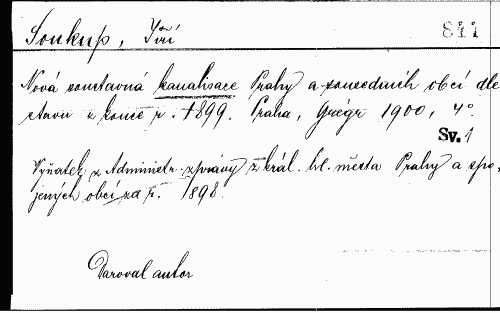 Soukup, Jiří 811
Nová soustavná kanalisace Prahy a sousedních obcí dle
stavu z konce r. 1899. Praha, Grégr 1900, 4°.
Sv. 1
Výňatek z Administr. zprávy z král. hl. města Prahy a spo-
jených obcí za r. 1898.
Daroval autor